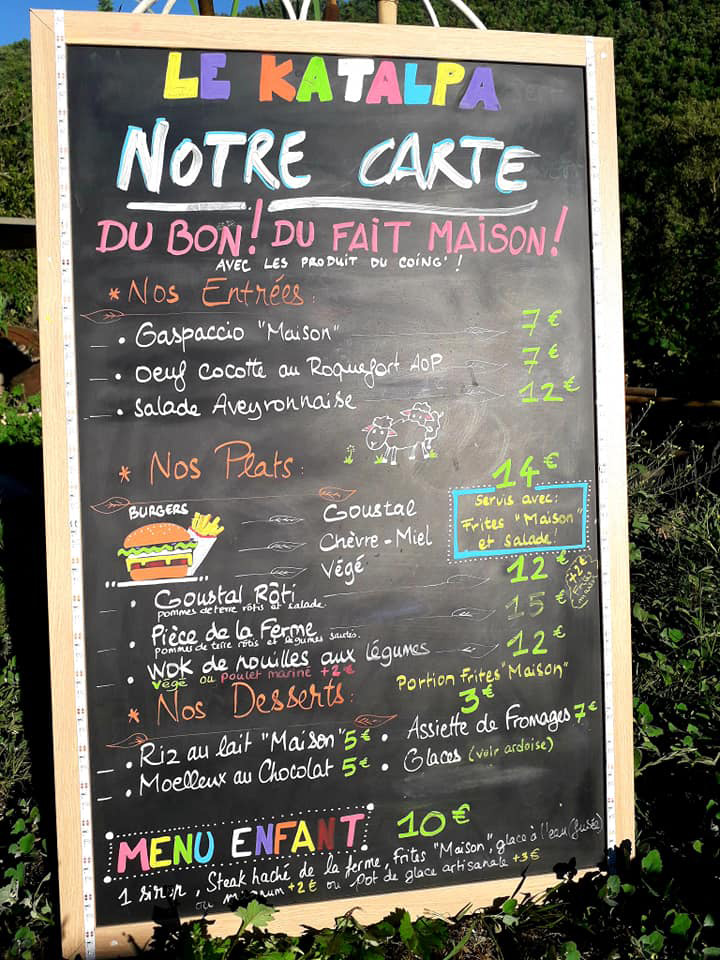 LE KATALPA
NOTRE CARTE
DU BON! DU FAIT MAISON!
AVEC LES PRODUIT DU COING'!
* Nos Entrées:
• Gaspaccio "Maison" 7€
• Oeuf cocotte au Roquefort AOP 7€
• Salade Aveyronnaise 12€
* Nos Plats: 14€
BURGERS Goustal
Chèvre-Miel
Végé
Servis avec:
Frites "Maison"
et salade!
• Goustal Rôti 12€
pommes de terre rôtis et salade.
+2€
• Pièce de la Ferme 15€
pommes de terre rôtis et légumes sautés.
• Wok de nouilles aux légumes 12€
végé ou poulet mariné +2€
Portion Frites "Maison"
3€
* Nos Desserts:
• Riz au lait "Maison" 5€
• Moelleux au Chocolat 5€
• Assiette de Fromages 7€
• Glaces (voir ardoise)
MENU ENFANT 10€
1 sirop, Steak haché de la ferme, Frites "Maison", glace à l'eau (fusée)
ou Magnum +2€ ou Pot de glace artisanale +3€